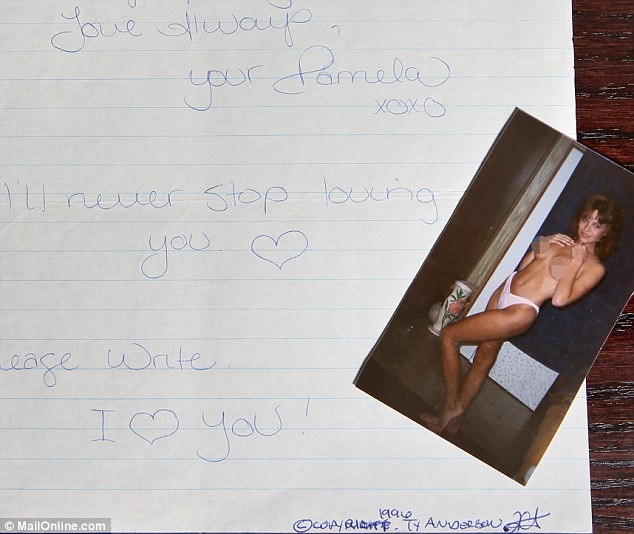 Love Always,
your Pamela
XOXO
I'll never stop loving
you. ♡
lease Write.
I ♡ you!
1996
© COPYRIGHT. TY ANDERSON.
© MailOnline.com